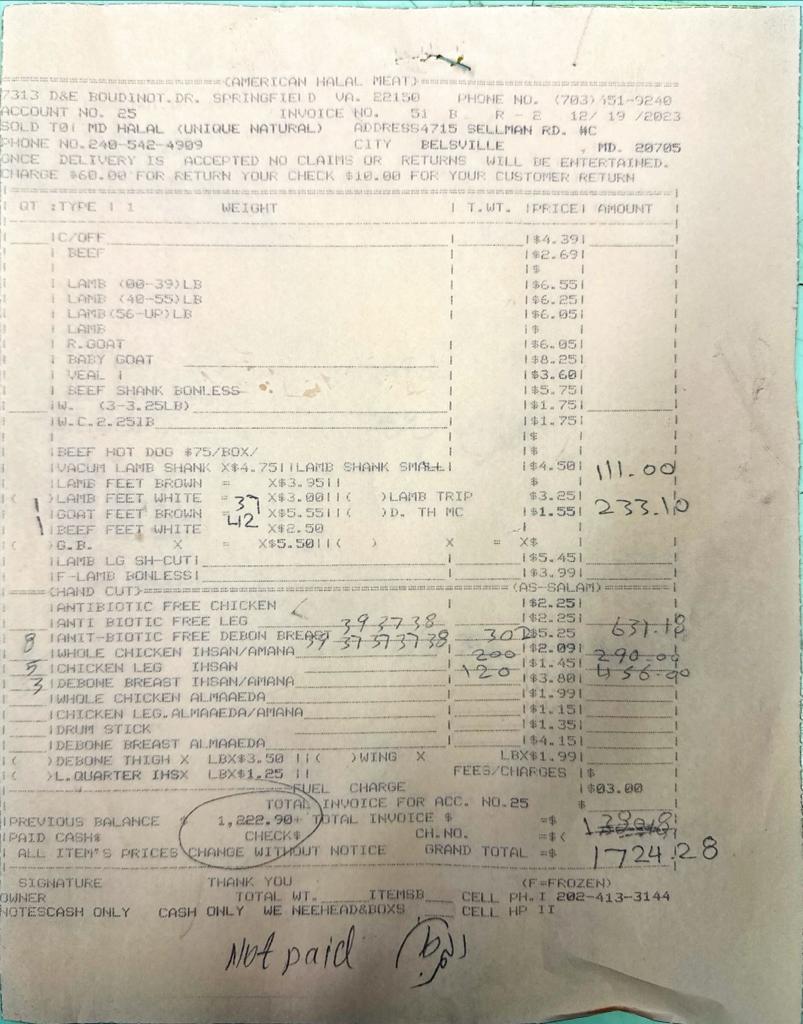 (AMERICAN HALAL MEAT)
7313 D&E BOUDINOT.DR. SPRINGFIELD VA. 22150 PHONE NO. (703)451-9240
ACCOUNT NO. 25 INVOICE NO. 51 B R - 2 12/ 19 /2023
SOLD TO: MD HALAL (UNIQUE NATURAL) ADDRESS4715 SELLMAN RD. #C
PHONE NO.240-542-4909 CITY BELSVILLE , MD. 20705
ONCE DELIVERY IS ACCEPTED NO CLAIMS OR RETURNS WILL BE ENTERTAINED.
CHARGE $60.00 FOR RETURN YOUR CHECK $10.00 FOR YOUR CUSTOMER RETURN
QT :TYPE | 1 WEIGHT | T.WT. |PRICE| AMOUNT
|C/OFF | |$4.39|
| BEEF |$2.69|
| |$ |
| LAMB (00-39)LB |$6.55|
| LAMB (40-55)LB |$6.25|
| LAMB(56-UP)LB |$6.05|
| LAMB |$ |
| R.GOAT |$6.05|
| BABY GOAT |$8.25|
| VEAL | |$3.60|
| BEEF SHANK BONLESS |$5.75|
|W. (3-3.25LB) |$1.75|
|W.C.2.25lB |$1.75|
| |$ |
|BEEF HOT DOG $75/BOX/ |$ |
|VACUM LAMB SHANK X$4.75||LAMB SHANK SMALL| |$4.50| 111.00
|LAMB FEET BROWN = X$3.95|| $
( 1 )LAMB FEET WHITE = 37 X$3.00||( )LAMB TRIP $3.25|
1 |GOAT FEET BROWN = 42 X$5.55||( )D. TH MC |$1.55| 233.10
|BEEF FEET WHITE X$2.50
( )G.B. X = X$5.50||( ) X = X$
|LAMB LG SH-CUT| |$5.45|
|F-LAMB BONLESS| |$3.99|
(HAND CUT) (AS-SALAM)
|ANTIBIOTIC FREE CHICKEN |$2.25|
|ANTI BIOTIC FREE LEG 39 37 38 |$2.25|
8 |ANIT-BIOTIC FREE DEBON BREAST 39 37 37 37 38 302 $5.25 631.18
|WHOLE CHICKEN IHSAN/AMANA |$2.09|
5 |CHICKEN LEG IHSAN 200 |$1.45| 290.00
3 |DEBONE BREAST IHSAN/AMANA 120 |$3.80| 456.00
|WHOLE CHICKEN ALMAAEDA |$1.99|
|CHICKEN LEG.ALMAAEDA/AMANA |$1.15|
|DRUM STICK |$1.35|
|DEBONE BREAST ALMAAEDA |$4.15|
( )DEBONE THIGH X LBX$3.50 ||( )WING X LBX$1.99|
( )L.QUARTER IHSX LBX$1.25 || FEES/CHARGES |$
FUEL CHARGE |$03.00
TOTAL INVOICE FOR ACC. NO.25 $
|PREVIOUS BALANCE $ 1,222.90+ TOTAL INVOICE $ =$
|PAID CASH$ CHECK$ CH.NO. =$<
| ALL ITEM'S PRICES CHANGE WITHOUT NOTICE GRAND TOTAL =$ 1724.28
SIGNATURE THANK YOU (F=FROZEN)
OWNER TOTAL WT. ITEMSB CELL PH.I 202-413-3144
NOTESCASH ONLY CASH ONLY WE NEEHEAD&BOXS CELL HP II
Not paid